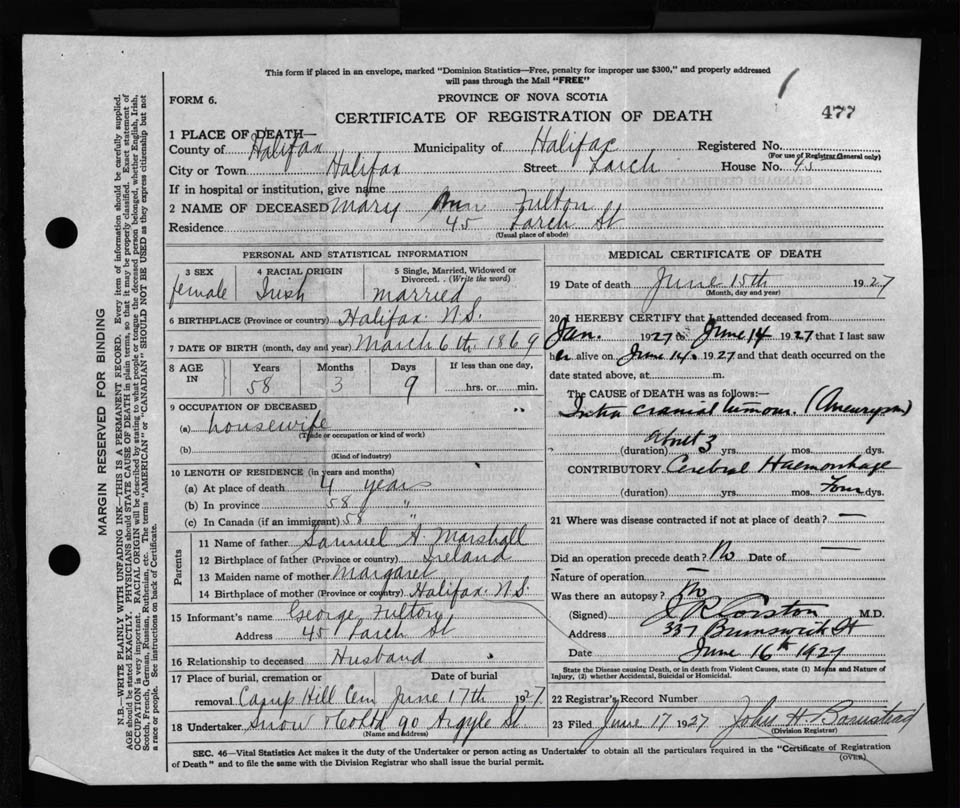 This form if placed in an envelope, marked "Dominion Statistics—Free, penalty for improper use $300," and properly addressed
will pass through the Mail "FREE"
FORM 6.
PROVINCE OF NOVA SCOTIA
477
CERTIFICATE OF REGISTRATION OF DEATH
1 PLACE OF DEATH—
County of Halifax Municipality of Halifax Registered No.
(For use of Registrar General only)
City or Town Halifax Street Larch House No. 45
If in hospital or institution, give name
2 NAME OF DECEASED Mary Ann Fulton
Residence 45 Larch St
(Usual place of abode)
PERSONAL AND STATISTICAL INFORMATION
3 SEX 4 RACIAL ORIGIN 5 Single, Married, Widowed or
Divorced. (Write the word)
female Irish Married
6 BIRTHPLACE (Province or country) Halifax N.S.
7 DATE OF BIRTH (month, day and year) March 6th 1869
8 AGE IN Years Months Days If less than one day,
58 3 9 hrs. or min.
9 OCCUPATION OF DECEASED
(a) housewife
(Trade or occupation or kind of work)
(b)
(Kind of industry)
10 LENGTH OF RESIDENCE (in years and months)
(a) At place of death 4 years
(b) In province 58 "
(c) In Canada (if an immigrant) 58 "
Parents
11 Name of father Samuel A. Marshall
12 Birthplace of father (Province or country) Ireland
13 Maiden name of mother Margaret
14 Birthplace of mother (Province or country) Halifax N.S.
15 Informant's name George Fulton
Address 45 Larch St
16 Relationship to deceased Husband
17 Place of burial, cremation or Date of burial
removal Camp Hill Cem June 17th 1927.
18 Undertaker Snow & Co Ltd 90 Argyle St.
(Name and address)
MEDICAL CERTIFICATE OF DEATH
19 Date of death June 15th 1927
(Month, day and year)
20 I HEREBY CERTIFY that I attended deceased from
Jan. 1927 to June 14 1927 that I last saw
her alive on June 14. 1927 and that death occurred on the
date stated above, at m.
The CAUSE OF DEATH was as follows:—
Intra cranial tumour. (Aneurysm)
(duration) about 3 yrs. mos. dys.
CONTRIBUTORY Cerebral Haemorrhage
(duration) yrs. mos. Four dys.
21 Where was disease contracted if not at place of death? —
Did an operation precede death? No Date of —
Nature of operation —
Was there an autopsy? No
(Signed) J R Corston M.D.
Address 337 Brunswick St
Date June 16th 1927
State the Disease causing Death, or in death from Violent Causes, state (1) Means and Nature of
Injury, (2) whether Accidental, Suicidal or Homicidal.
22 Registrar's Record Number
23 Filed June 17 1927 John H. Barnstead
(Division Registrar)
SEC. 46—Vital Statistics Act makes it the duty of the Undertaker or person acting as Undertaker to obtain all the particulars required in the "Certificate of Registration
of Death" and to file the same with the Division Registrar who shall issue the burial permit.
(OVER)
MARGIN RESERVED FOR BINDING
N.B.—WRITE PLAINLY WITH UNFADING INK—THIS IS A PERMANENT RECORD. Every item of information should be carefully supplied.
AGE should be stated EXACTLY. PHYSICIANS should STATE CAUSE OF DEATH in plain terms, so that it may be properly classified. Exact statement of
OCCUPATION is very important. RACIAL ORIGIN will be described by stating to what people or tongue the deceased person belonged, whether English, Irish,
Scotch, French, German, Russian, Ruthenian, etc. The terms "AMERICAN" or "CANADIAN" SHOULD NOT BE USED as they express citizenship but not
a race or people. See instructions on back of Certificate.